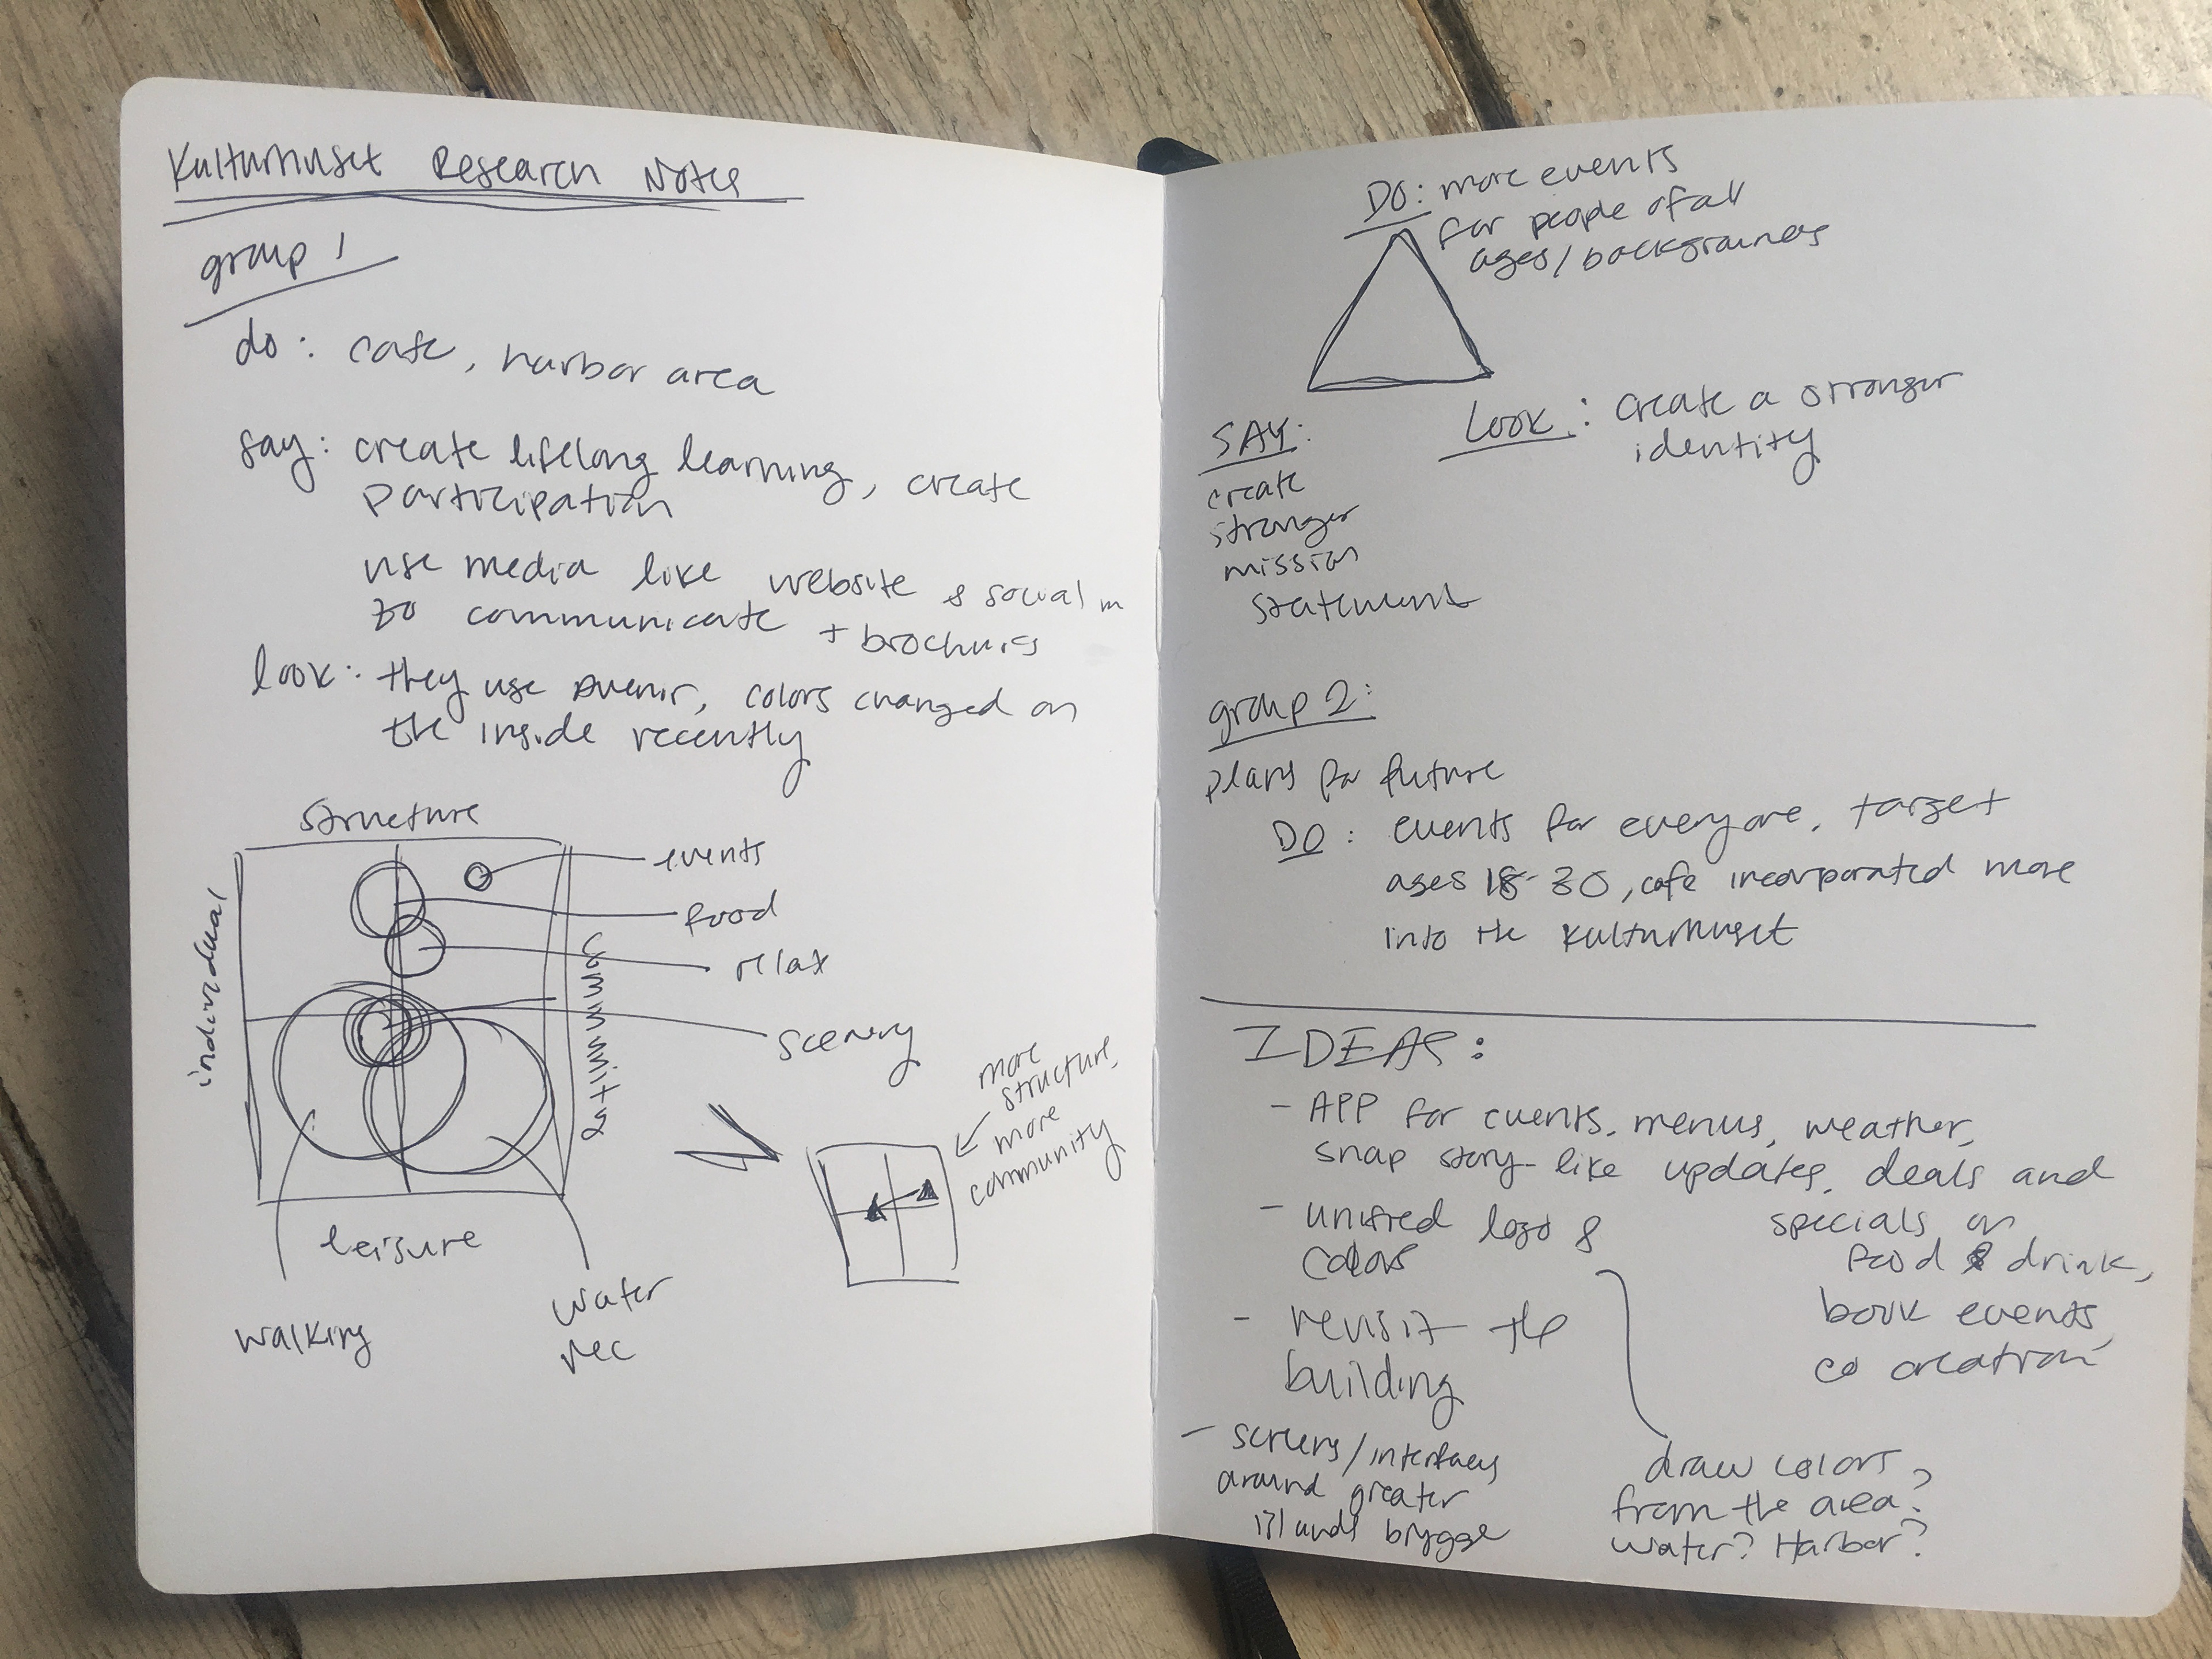 Kulturhuset Research Notes
group 1
do: cafe, harbor area
say: create lifelong learning, create
participation
use media like website & social m
to communicate + brochures
look: they use Avenir, colors changed on
the inside recently
structure
individual
community
leisure
events
food
relax
scenery
walking
water
rec
more
structure,
more
community
DO: more events
for people of all
ages/backgrounds
SAY:
create
stronger
mission
statement
Look: create a stronger
identity
group 2:
plans for future
DO: events for everyone, target
ages 18-30, cafe incorporated more
into the Kulturhuset
IDEAS:
- APP for events, menus, weather,
snap story-like updates, deals and
specials on
food & drink,
book events,
co creation
- unified logo &
colors
draw colors
from the area?
water? Harbor?
- revisit the
building
- screens/interfaces
around greater
islands brygge